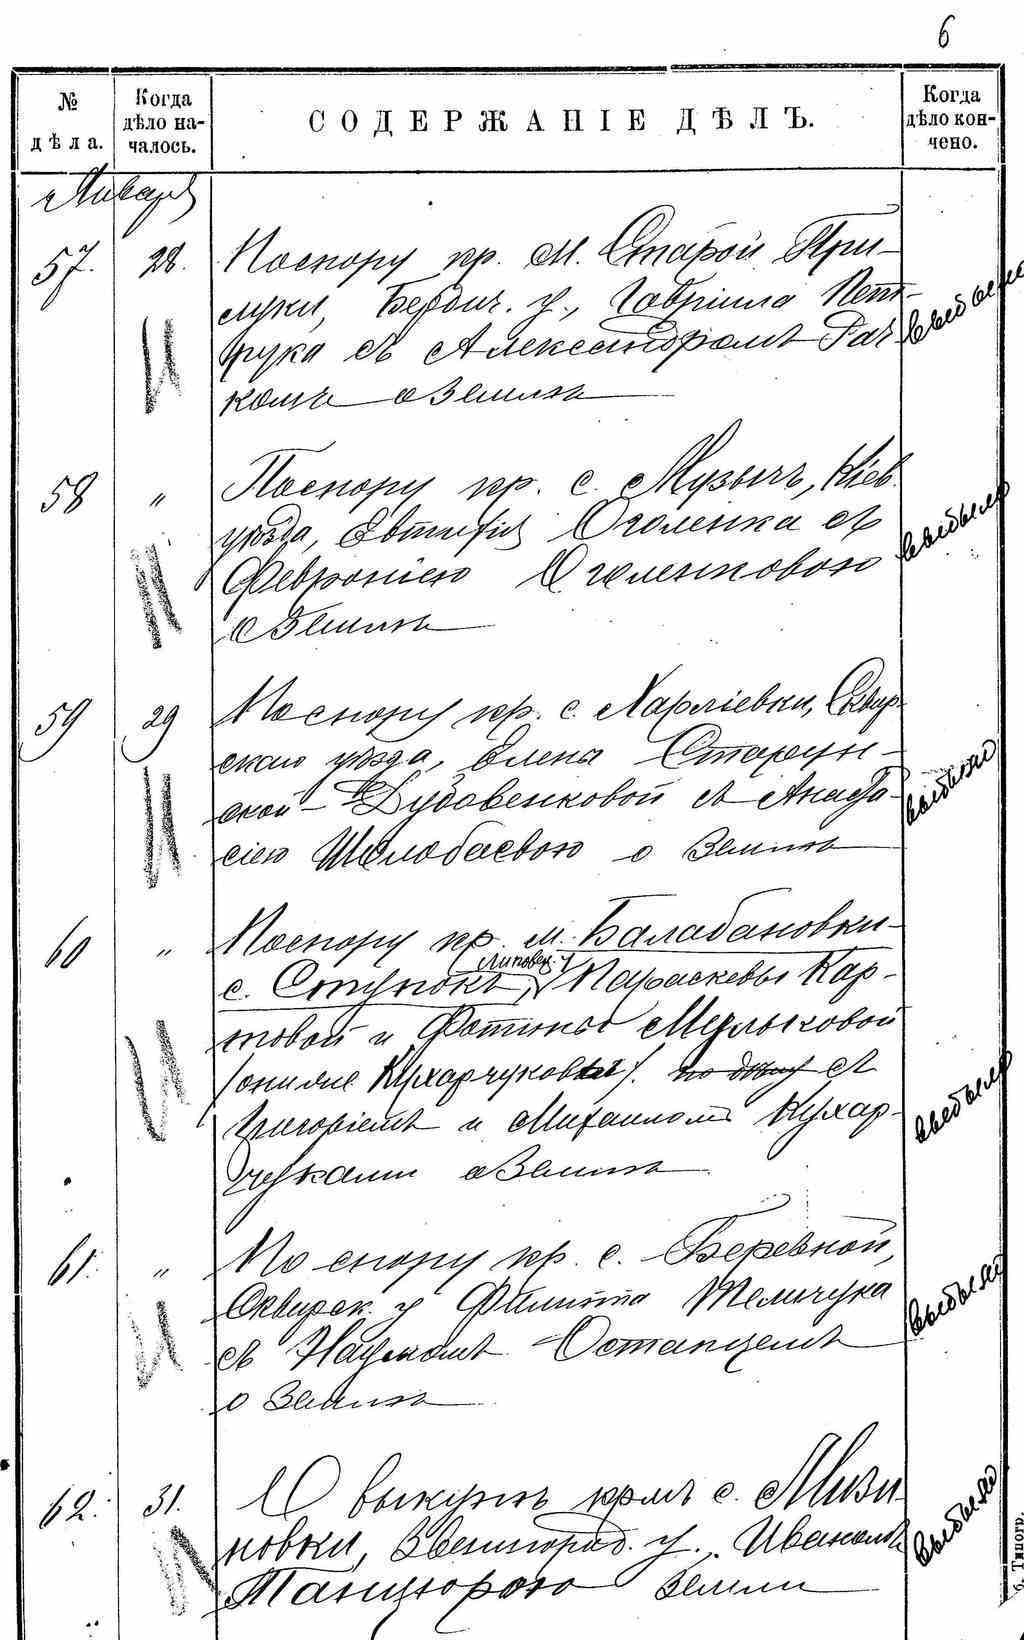 6
№ дѣла.
Когда дѣло началось.
СОДЕРЖАНІЕ ДѢЛЪ.
Когда дѣло кончено.
Январь
57. 28. По спору кр. м. Старой При-
луки, Бердич. у., Гавріила Пет-
рука съ Александромъ Рач-
комъ о землѣ
выбыло
58 " По спору кр. с. Музычъ, Кіев.
уѣзда, Евтифія Оголенка съ
Февроніею Оголенковою
о землѣ
выбыло
59 29 По спору кр. с. Харліевки, Сквир-
скаго уѣзда, Елена
ской-Дубовенковой съ Анаста-
сіею Шолобаевою о землѣ
выбыло
60 " По спору кр. м. Балабановки-
Липовец. у
с. Ступокъ, Параскевы Кар-
повой и Фотины Мельковой
/они же Кухарчуковы/. съ
Григоріемъ и Михаиломъ Кухар-
чуками о землѣ
выбыло
61. " По спору кр. с. Беревной,
Сквирск. у Филиппа Тельчука
съ Наумомъ Остапцемъ
о землѣ
выбыло
62. 31. О выкупѣ крмъ с. Мизи-
новки, Звенигород. у., Иваномъ
Танцюрою земли
выбыло
Типогр.